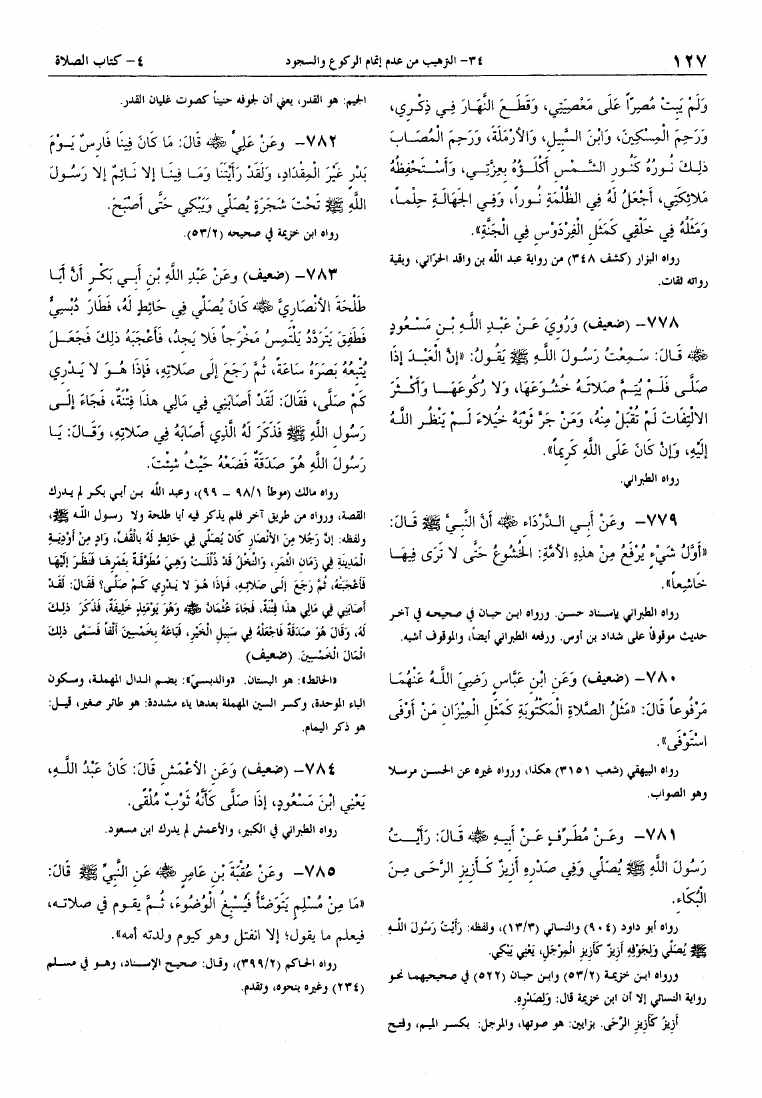 ٤- كتاب الصلاة
٣٤- الترهيب من عدم إتمام الركوع والسجود
١٢٧
وَلَمْ يَبِتْ مُصِرّاً عَلَى مَعْصِيَتِي، وَقَطَعَ النَّهَارَ فِي ذِكْرِي،
وَرَحِمَ الْمِسْكِينَ، وَابْنَ السَّبِيلِ، وَالأَرْمَلَةَ، وَرَحِمَ الْمُصَابَ
ذلِكَ نُورُهُ كَنُورِ الشَّمْسِ أَكْلَؤُهُ بِعِزَّتِي، وَأَسْتَحْفِظُهُ
مَلائِكَتِي، أَجْعَلُ لَهُ فِي الظُّلْمَةِ نُوراً، وَفِي الْجَهَالَةِ حِلْماً،
وَمَثَلُهُ فِي خَلْقِي كَمَثَلِ الْفِرْدَوْسِ فِي الْجَنَّةِ».
رواه البزار (كشف ٣٤٨) من رواية عبد الله بن واقد الحرّاني، وبقية
رواته ثقات.
٧٧٨- (ضعيف) وَرُوِيَ عَنْ عَبْدِ اللهِ بْنِ مَسْعُودٍ
ﷺ قَالَ: سَمِعْتُ رَسُولَ اللهِ ﷺ يَقُولُ: «إِنَّ الْعَبْدَ إذَا
صَلَّى فَلَمْ يُتِمَّ صَلاتَهُ خُشُوعَهَا، وَلا رُكُوعَهَا وَأَكْثَرَ
الالْتِفَاتَ لَمْ تُقْبَلْ مِنْهُ، وَمَنْ جَرَّ ثَوْبَهُ خُيَلاءَ لَمْ يَنْظُرِ اللهُ
إلَيْهِ، وَإنْ كَانَ عَلَى اللهِ كَرِيماً».
رواه الطبراني.
٧٧٩- وعَنْ أَبِي الدَّرْدَاءِ ﷺ أَنَّ النَّبِيَّ ﷺ قَالَ:
«أَوَّلُ شَيْءٍ يُرْفَعُ مِنْ هذِهِ الأُمَّةِ: الْخُشُوعُ حَتَّى لا تَرَى فِيهَا
خَاشِعاً».
رواه الطبراني بإسناد حسن. ورواه ابن حبان في صحيحه في آخر
حديث موقوفاً على شداد بن أوس. ورفعه الطبراني أيضاً، والموقوف أشبه.
٧٨٠- (ضعيف) وَعَنِ ابْنِ عَبَّاسٍ رَضِيَ اللهُ عَنْهُمَا
مَرْفُوعاً قَالَ: «مَثَلُ الصَّلاةِ الْمَكْتُوبَةِ كَمَثَلِ الْمِيزَانِ مَنْ أَوْفَى
اسْتَوْفَى».
رواه البيهقي (شعب ٣١٥١) هكذا، ورواه غيره عن الحسن مرسلا
وهو الصواب.
٧٨١- وعَنْ مُطَرِّفٍ عَنْ أَبِيهِ ﷺ قَالَ: رَأَيْتُ
رَسُولَ اللهِ ﷺ يُصَلِّي وَفِي صَدْرِهِ أَزِيزٌ كَأَزِيزِ الرَّحَى مِنَ
الْبُكَاءِ.
رواه أبو داود (٩٠٤) والنسائي (١٣/٣)، ولفظه: رَأَيْتُ رَسُولَ اللهِ
ﷺ يُصَلِّي وَلِجَوْفِهِ أَزِيزٌ كَأَزِيزِ الْمِرْجَلِ، يَعْنِي يَبْكِي.
ورواه ابن خزيمة (٥٣/٢) وابن حبان (٥٢٢) في صحيحيهما نحو
رواية النسائي إلا أن ابن خزيمة قال: وَلِصَدْرِهِ.
أَزِيزٌ كَأَزِيزِ الرَّحَى. بزايين: هو صوتها، والمرجل: بكسر الميم، وفتح
الجيم: هو القدر، يعني أن لجوفه حنيناً كصوت غليان القدر.
٧٨٢- وعَنْ عَلِيٍّ ﷺ قَالَ: مَا كَانَ فِينَا فَارِسٌ يَوْمَ
بَدْرٍ غَيْرَ الْمِقْدَادِ، وَلَقَدْ رَأَيْتُنَا وَمَا فِينَا إلا نَائِمٌ إلا رَسُولَ
اللهِ ﷺ تَحْتَ شَجَرَةٍ يُصَلِّي وَيَبْكِي حَتَّى أَصْبَحَ.
رواه ابن خزيمة في صحيحه (٥٣/٢).
٧٨٣- (ضعيف) وعَنْ عَبْدِ اللهِ بْنِ أَبِي بَكْرٍ أَنَّ أَبَا
طَلْحَةَ الأَنْصَارِيَّ ﷺ كَانَ يُصَلِّي فِي حَائِطٍ لَهُ، فَطَارَ دُبْسِيٌّ
فَطَفِقَ يَتَرَدَّدُ يَلْتَمِسُ مَخْرَجاً فَلا يَجِدُ، فَأَعْجَبَهُ ذلِكَ فَجَعَلَ
يُتْبِعُهُ بَصَرَهُ سَاعَةً، ثُمَّ رَجَعَ إلَى صَلاتِهِ، فَإذَا هُوَ لا يَدْرِي
كَمْ صَلَّى، فَقَالَ: لَقَدْ أَصَابَنِي فِي مَالِي هذَا فِتْنَةٌ، فَجَاءَ إلَى
رَسُولِ اللهِ ﷺ فَذَكَرَ لَهُ الَّذِي أَصَابَهُ فِي صَلاتِهِ، وَقَالَ: يَا
رَسُولَ اللهِ هُوَ صَدَقَةٌ فَضَعْهُ حَيْثُ شِئْتَ.
رواه مالك (موطأ ٩٨/١ - ٩٩)، وعبد الله بن أبي بكر لم يدرك
القصة، ورواه من طريق آخر فلم يذكر فيه أبا طلحة ولا رسول الله ﷺ،
ولفظه: إنَّ رَجُلا مِنَ الأَنْصَارِ كَانَ يُصَلِّي فِي حَائِطٍ لَهُ بِالْقُفِّ، وَادٍ مِنْ أَوْدِيَةِ
الْمَدِينَةِ فِي زَمَانِ الثَّمَرِ، وَالنَّخْلُ قَدْ ذُلِّلَتْ وَهِيَ مُطَوَّقَةٌ بِثَمَرِهَا فَنَظَرَ إلَيْهَا
فَأَعْجَبَتْهُ، ثُمَّ رَجَعَ إلَى صَلاتِهِ، فَإذَا هُوَ لا يَدْرِي كَمْ صَلَّى؟ فَقَالَ: لَقَدْ
أَصَابَنِي فِي مَالِي هذَا فِتْنَةٌ، فَجَاءَ عُثْمَانَ ﷺ وَهُوَ يَوْمَئِذٍ خَلِيفَةٌ، فَذَكَرَ ذلِكَ
لَهُ، وَقَالَ هُوَ صَدَقَةٌ فَاجْعَلْهُ فِي سَبِيلِ الْخَيْرِ، فَبَاعَهُ بِخَمْسِينَ أَلْفاً فَسُمِّيَ ذلِكَ
الْمَالَ الْخَمْسِينَ. (ضعيف)
«الحائط»: هو البستان. «والدبسيّ»: بضم الدال المهملة، وسكون
الباء الموحدة، وكسر السين المهملة بعدها ياء مشددة: هو طائر صغير، قيل:
هو ذكر اليمام.
٧٨٤- (ضعيف) وَعَنِ الأَعْمَشِ قَالَ: كَانَ عَبْدُ اللهِ،
يَعْنِي ابْنَ مَسْعُودٍ، إذَا صَلَّى كَأَنَّهُ ثَوْبٌ مُلْقًى.
رواه الطبراني في الكبير، والأعمش لم يدرك ابن مسعود.
٧٨٥- وعَنْ عُقْبَةَ بْنِ عَامِرٍ ﷺ عَنِ النَّبِيِّ ﷺ قَالَ:
«مَا مِنْ مُسْلِمٍ يَتَوَضَّأُ فَيُسْبِغُ الْوُضُوءَ، ثُمَّ يقوم في صلاته،
فيعلم ما يقول؛ إلا انفتل وهو كيوم ولدته أمه».
رواه الحاكم (٣٩٩/٢)، وقال: صحيح الإسناد، وهو في مسلم
(٢٣٤) وغيره بنحوه، وتقدم.